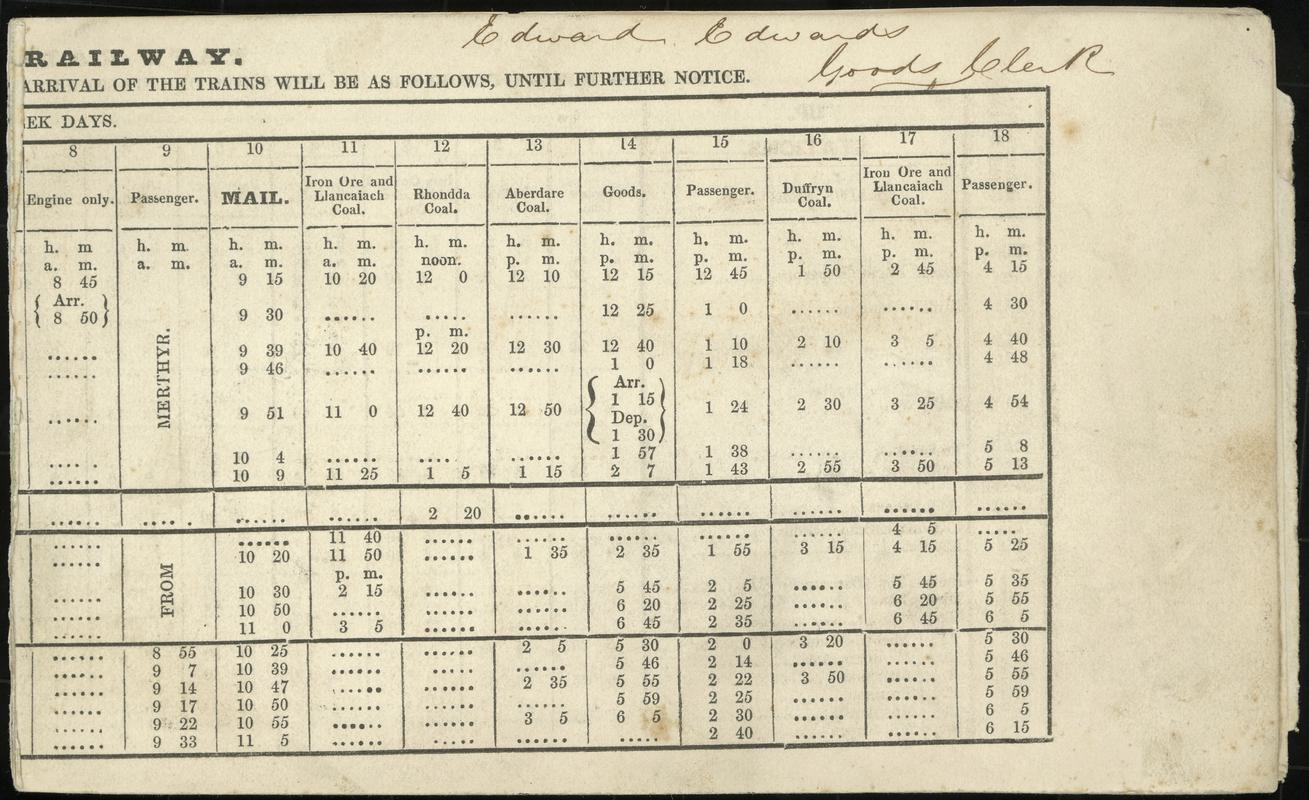 Edward Edwards
Goods Clerk
RAILWAY.
ARRIVAL OF THE TRAINS WILL BE AS FOLLOWS, UNTIL FURTHER NOTICE.
EK DAYS.
8 9 10 11 12 13 14 15 16 17 18
Engine only. Passenger. MAIL. Iron Ore and Llancaiach Coal. Rhondda Coal. Aberdare Coal. Goods. Passenger. Duffryn Coal. Iron Ore and Llancaiach Coal. Passenger.
h. m h. m. h. m. h. m. h. m. h. m. h. m. h. m. h. m. h. m. h. m.
a. m. a. m. a. m. a. m. noon. p. m. p. m. p. m. p. m. p. m. p. m.
8 45 9 15 10 20 12 0 12 10 12 15 12 45 1 50 2 45 4 15
{ Arr. 8 50 } 9 30 ...... ...... ...... 12 25 1 0 ...... ...... 4 30
p. m.
...... 9 39 10 40 12 20 12 30 12 40 1 10 2 10 3 5 4 40
...... 9 46 ...... ...... ...... 1 0 1 18 ...... ...... 4 48
...... MERTHYR. 9 51 11 0 12 40 12 50 { Arr. 1 15 Dep. 1 30 } 1 24 2 30 3 25 4 54
.... . 10 4 ...... .... ...... 1 57 1 38 ...... ...... 5 8
...... 10 9 11 25 1 5 1 15 2 7 1 43 2 55 3 50 5 13
...... .... . ...... ...... 2 20 ...... ...... ...... ...... ...... ......
...... ...... 11 40 ...... ...... ...... ...... ...... 4 5 ......
...... 10 20 11 50 ...... 1 35 2 35 1 55 3 15 4 15 5 25
p. m.
...... FROM 10 30 2 15 ...... ...... 5 45 2 5 ...... 5 45 5 35
...... 10 50 ...... ...... ...... 6 20 2 25 ...... 6 20 5 55
...... 11 0 3 5 ...... ...... 6 45 2 35 ...... 6 45 6 5
...... 8 55 10 25 ...... ...... 2 5 5 30 2 0 3 20 ...... 5 30
...... 9 7 10 39 ...... ...... ...... 5 46 2 14 ...... ...... 5 46
...... 9 14 10 47 ...... ...... 2 35 5 55 2 22 3 50 ...... 5 55
...... 9 17 10 50 ...... ...... ...... 5 59 2 25 ...... ...... 5 59
...... 9 22 10 55 ...... ...... 3 5 6 5 2 30 ...... ...... 6 5
...... 9 33 11 5 ...... ...... ...... ..... 2 40 ...... ...... 6 15